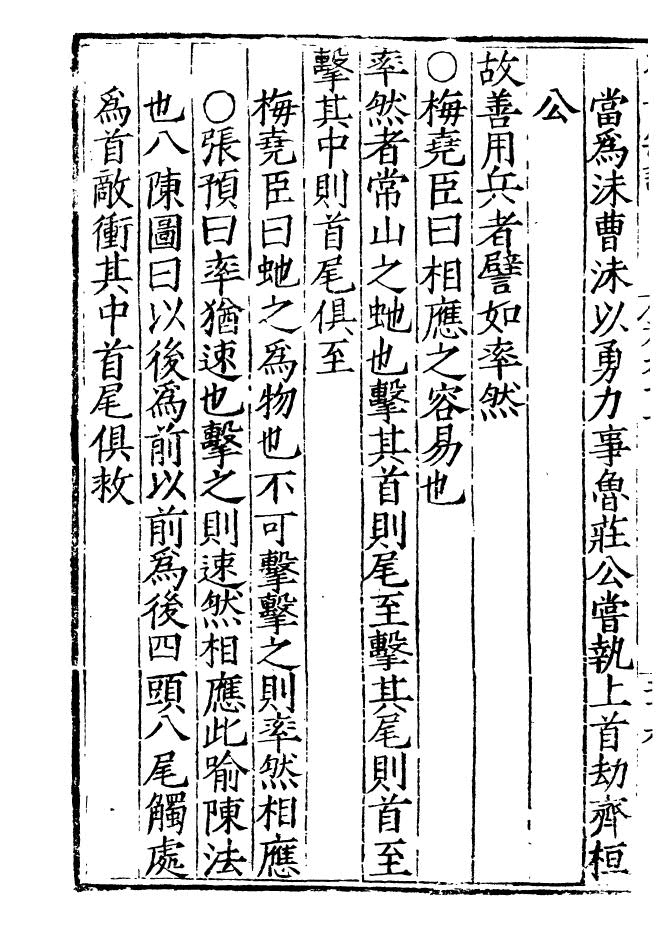 當爲沬曹沬以勇力事魯莊公嘗執上首劫齊桓
公
故善用兵者譬如率然
○梅堯臣曰相應之容易也
率然者常山之虵也擊其首則尾至擊其尾則首至
擊其中則首尾俱至
梅堯臣曰虵之爲物也不可擊擊之則率然相應
○張預曰率猶速也擊之則速然相應此喻陳法
也八陳圖曰以後爲前以前爲後四頭八尾觸處
爲首敵衝其中首尾俱救